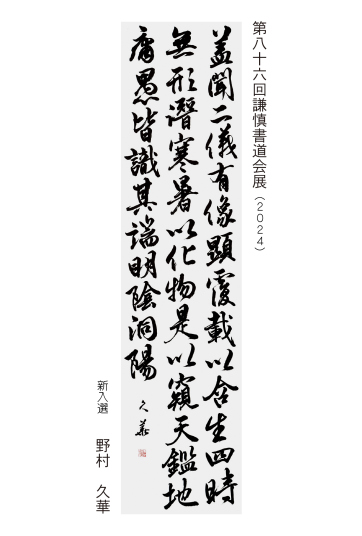 第八十六回謙慎書道会展（2024）
蓋聞二儀有像顕覆載以含生四時
無形潛寒暑以化物是以窺天鑑地
庸愚皆識其端明陰洞陽
久華
新入選　野村　久華